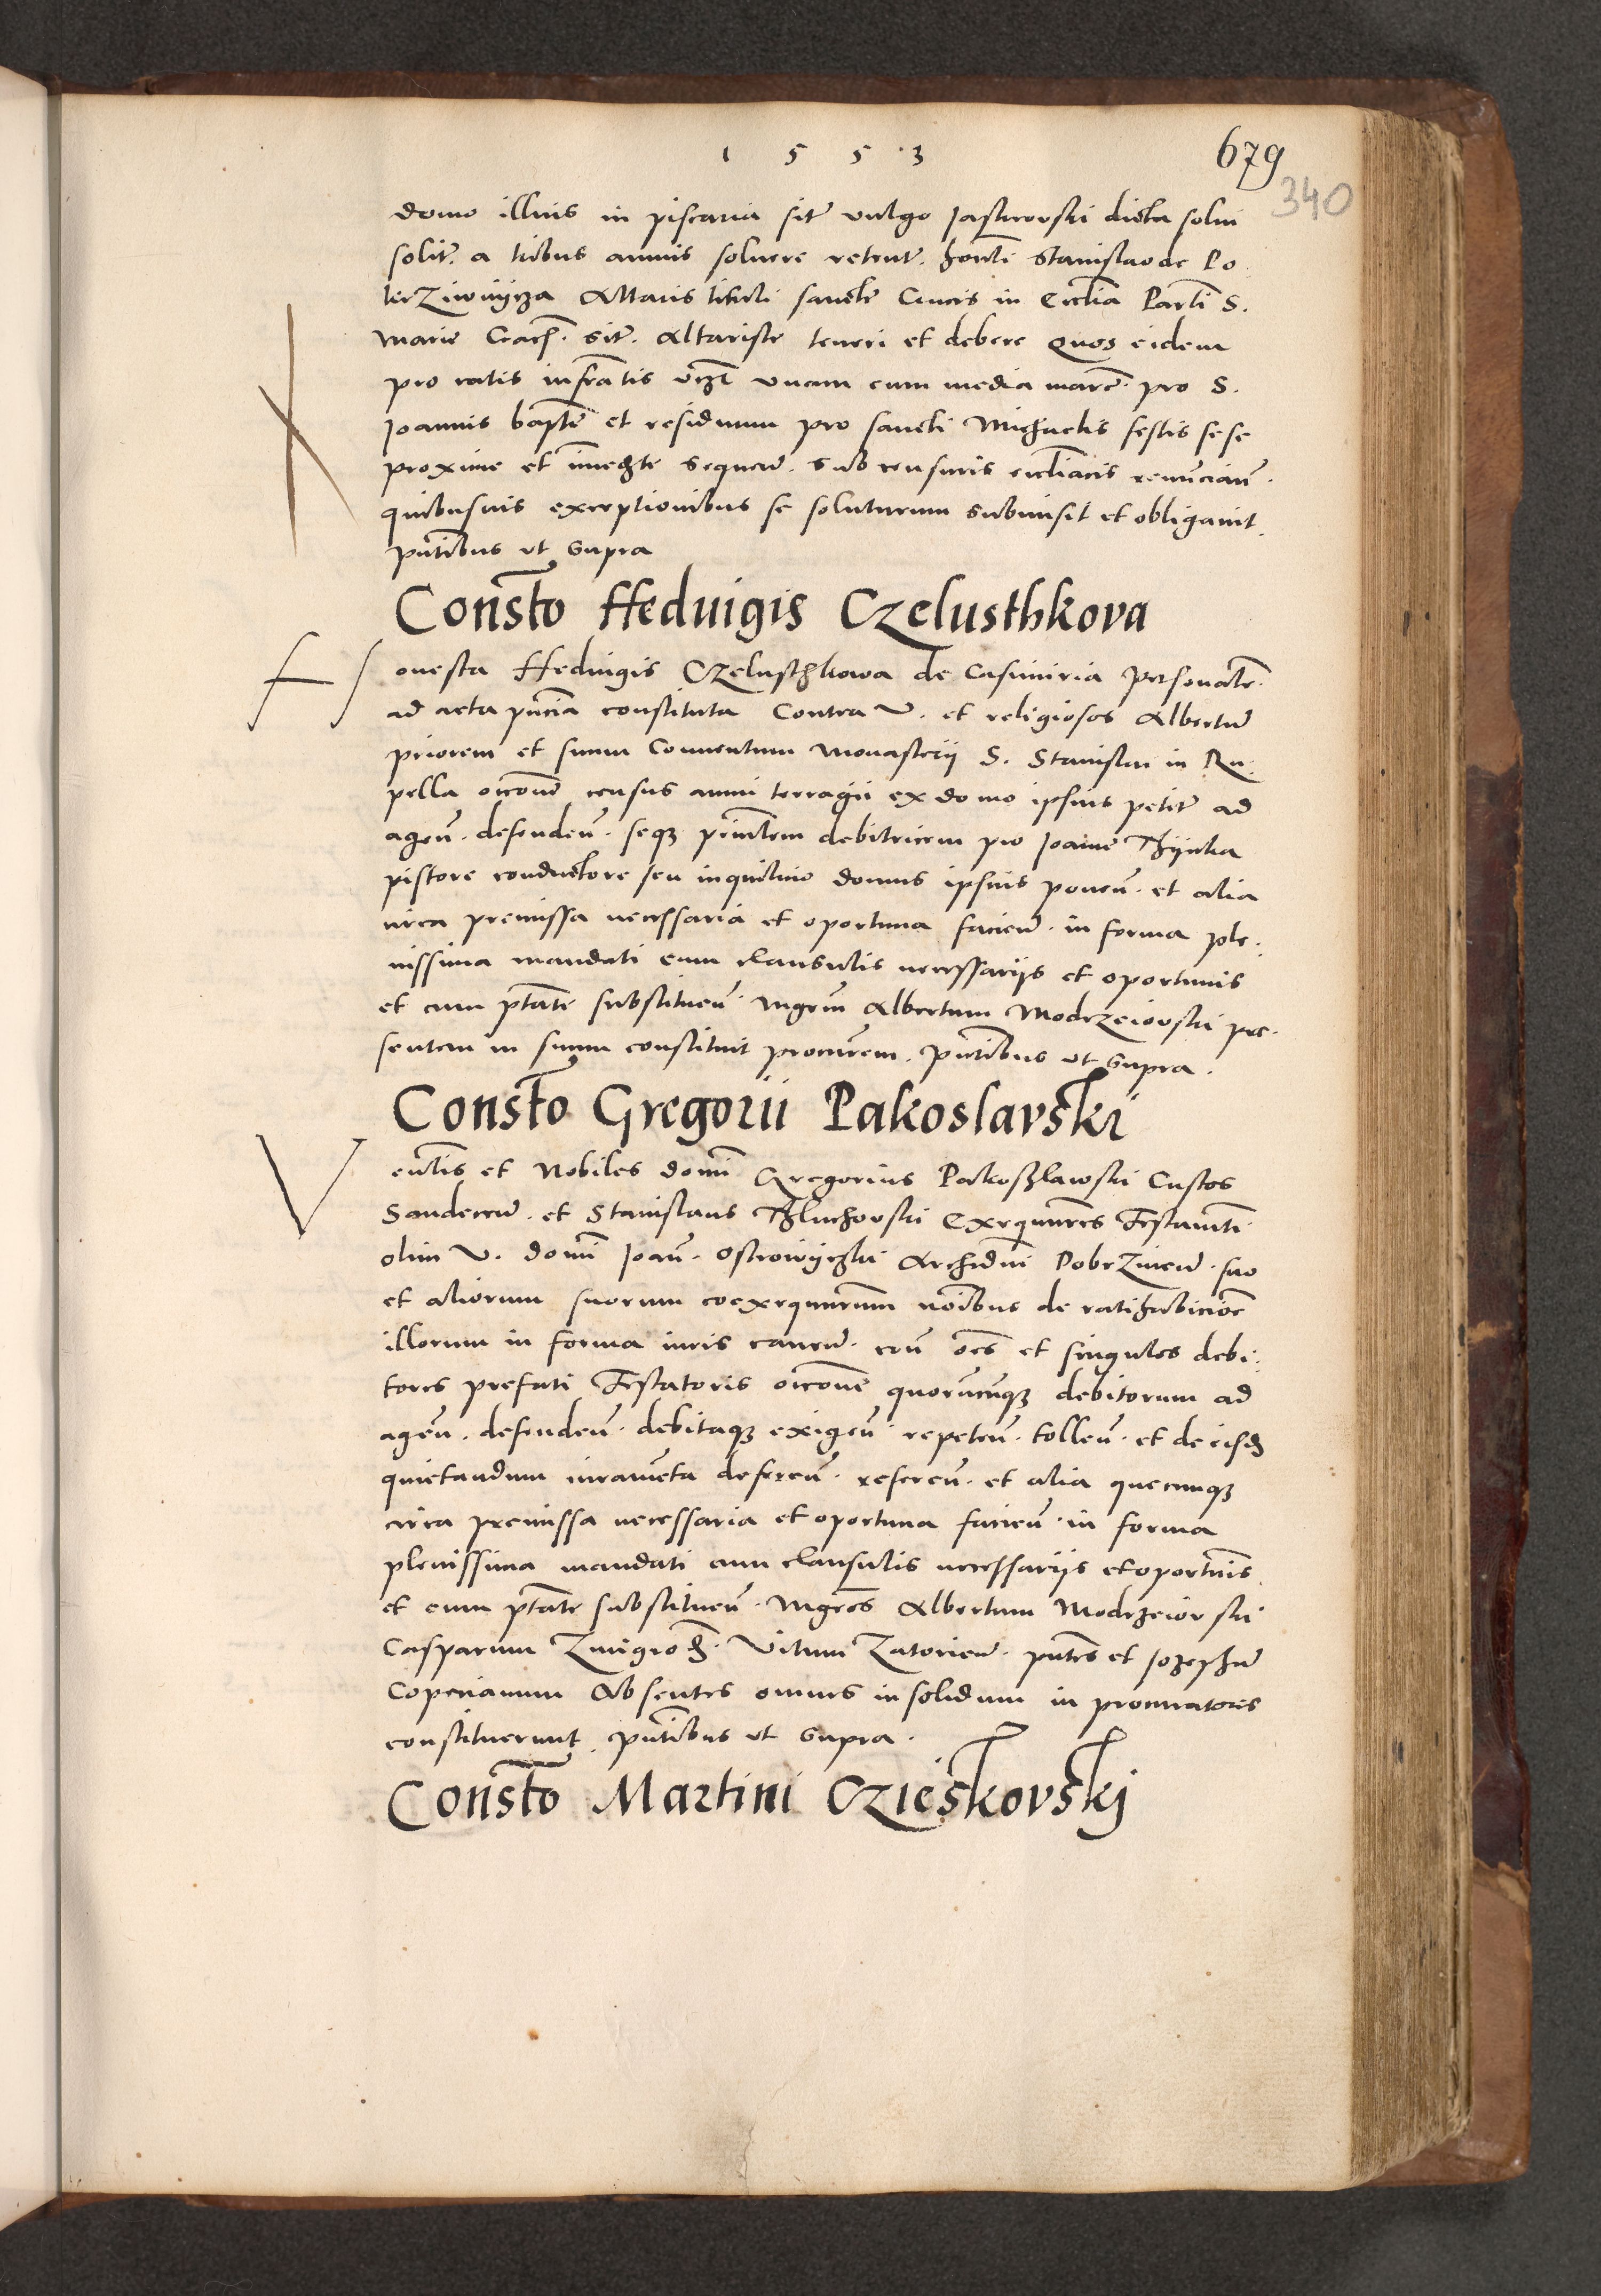 1 5 5 3
679
340
domo illius in piscaria sit~ vulgo Jastrovski dicta solui
solit~. a tribus annis soluere retent~. honli Stanislao de Po
terziwnycza Altaris tituli sancte Crucis in Ecclia Parli S.
marie Crac~. sit~. Altariste teneri et debere Quos eidem
pro ratis infratis vizt vnam cum media marc~. pro S.
Joannis bapte et residuum pro sancti Michaelis festis sese
proxime et immediate sequen~. sub censuris eccliacis renuncian~.
quibusuis exceptionibus se soluturum submisit et obligauit.
pntibus vt supra
Consto Hedvigis Czelusthkova
H onesta Hedvigis Czelusthkowa de Casimiria personalr~.
ad acta pntia constituta Contra V. et religiosos Albertum
priorem et suum Conuentum Monasterij S. Stanislai in Ru.
pella occone census annui terragij ex domo ipsius petit~ ad
agen~. defenden~. seq3 principalem debitricem pro Joanne
pistore conductore seu inquilino domus ipsius ponen~. et alia
circa premissa necessaria et oportuna facien~. in forma ple.
nissima mandati cum clausulis necessarijs et oportunis
et cum ptate substituen~. Mgrm Albertum Modrzeiovski pre.
sentem in suum constituit procurem. pntibus vt supra.
Consto Gregorii Pakoslavski
V enlis et Nobiles domi Gregorius Pakoszlawski Custos
Sandecen~. et Stanislaus Thluchovski Exequutores Testamti
olim V. domi Joan~. Ostrowyczki Archidni Dobrzinen~. suo
et aliorum suorum coexequutorum noibus de ratihabicioe
illorum in forma iuris cauen~. con~ oes et singulos debi.
tores prefati Testatoris occone quorucunq3 debitorum ad
agen~. defenden~. debitaq3 exigen~ repeten~. tollen~. et de eisd~
quietandum iuramenta deferen~. referen~. et alia quecunq3
circa premissa necessaria et oportuna facien~. in forma
plenissima mandati cum clausulis necessarijs et oportunis
et cum ptate substituen~. Mgros Albertum Modrzeiovski
Casparum Zmigrod~. Vitum Zatorien~. pntes et Jozephum
Coperianum Absentes omnes insolidum in procuratores
constituerunt. pntibus vt supra.
Consto Martini Czieskovskj